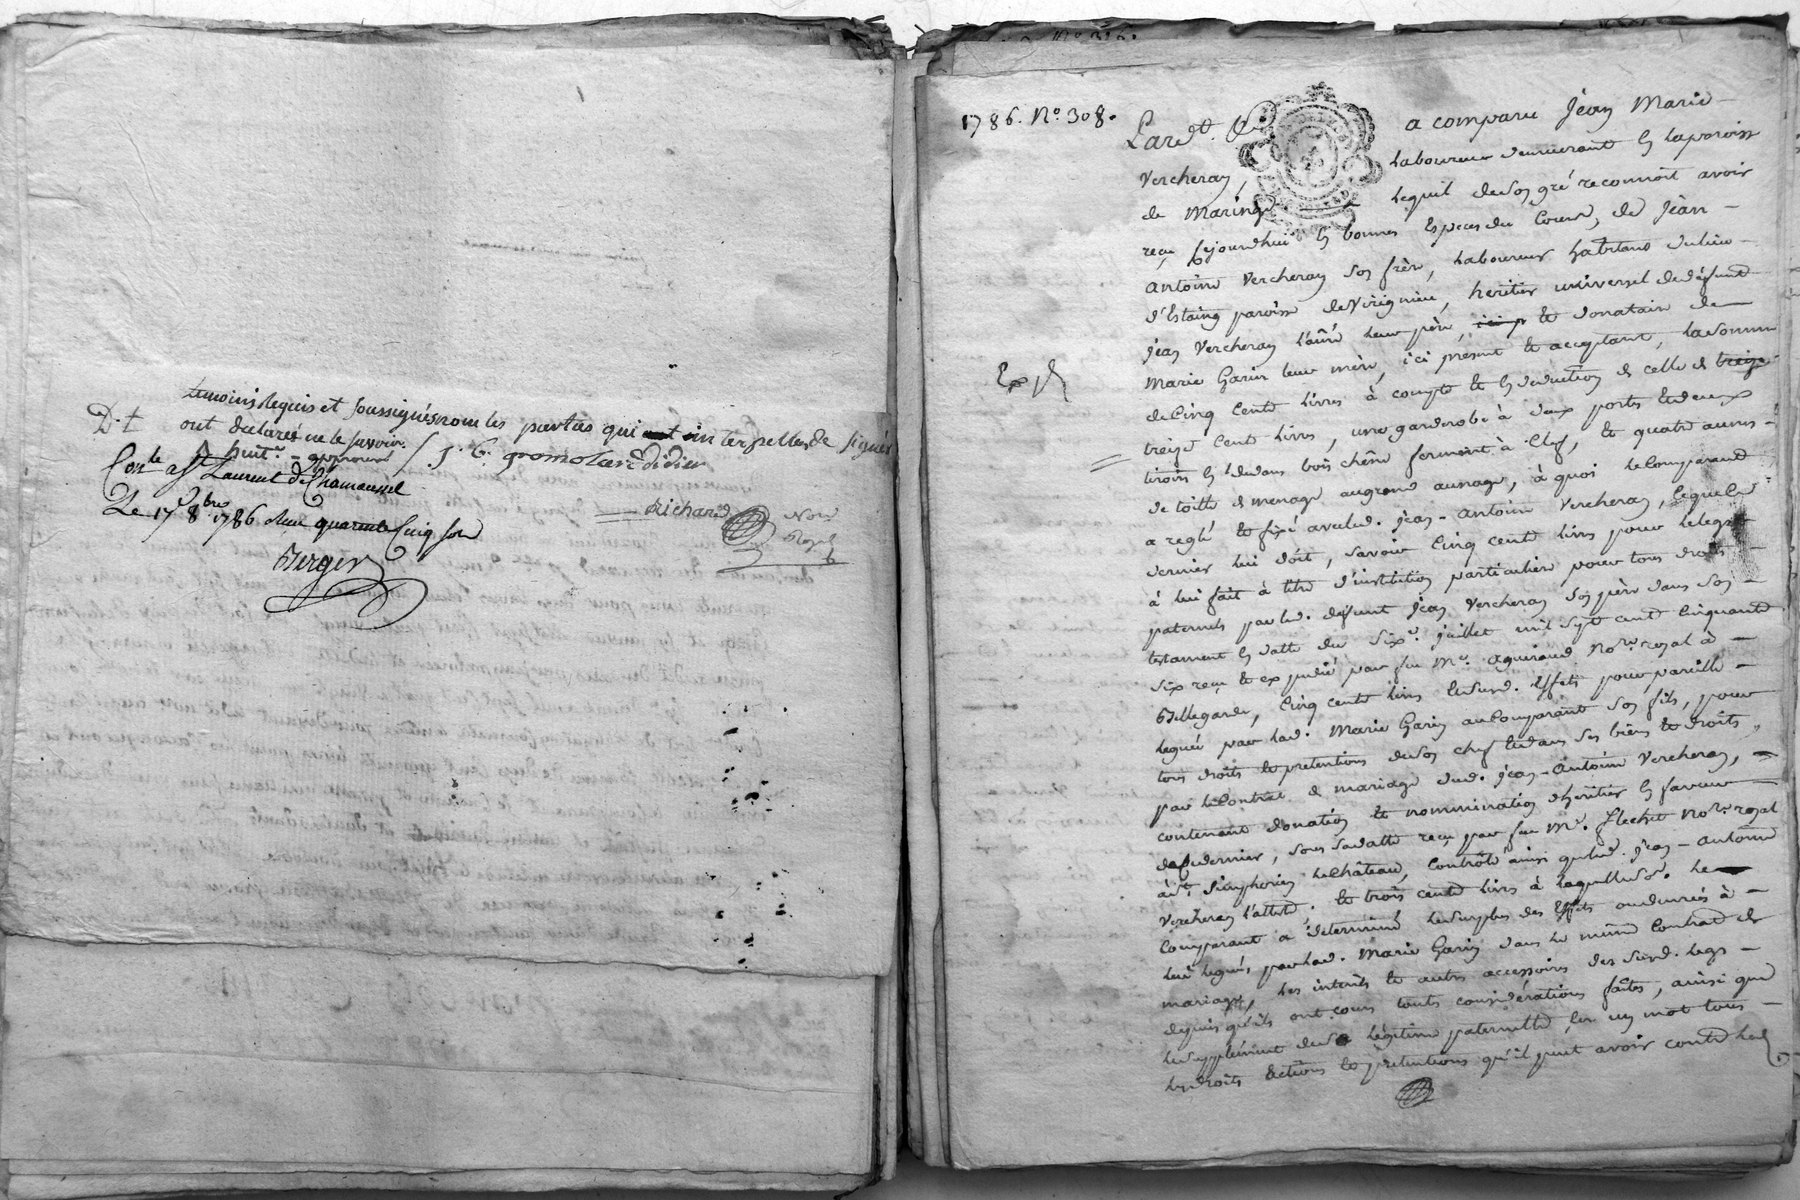 temoins requis et soussignés non les parties qui interpellées de signer
D.t ont declaré ne le savoir.
huit.e approuvé J. C. gromolard didier
Con.lé a St Laurent de Chamousset
Richard Not.e Royal
Le 17 8bre 1786 Reçu quarente Cinq sols
Berger
1786. N.o 308.
Pard.t a comparu Jean Marie
Vercheray, Laboureur demeurant en la paroisse
de Maringe Lequel de son gré reconnoit avoir
reçu cejourdhui en bonnes Especes du Cours, de Jean
antoine Vercheray son frère, Laboureur habitant du lieu
d'Estaing paroisse de Virignieu, heritier universel de défunt
Jean Vercheray L'aîné leur père, et donataire de
Marie Garin leur mère, ici présent et acceptant, la somme
de Cinq Cents Livres à compte et en déduction de celle de treize
Exp.
treize Cents Livres, une garderobe à deux portes et deux
tiroirs en dedans bois chêne fermant à Clef, et quatre aunes
de toille de menage au grand aunage, à quoi le Comparant
a reglé et fixé avec led. Jean-antoine Vercheray, ce que ce
dernier lui doit, savoir Cinq cents Livres pour le legs
à lui fait à titre d'institution particulière pour tous droits
paternels par led. défunt Jean Vercheray son père dans son
testament en datte du Six.e juillet mil sept cent Cinquante
Six reçu et expedié par feu M.e aguiraud No.re royal à
Bellegarde, Cinq cents Livres et lesd. Effets pour pareille
legués par lad. Marie Garin au Comparant son fils, pour
tous droits et pretentions de son chef et dans ses biens et droits,
par le Contrat de mariage dud. Jean-Antoine Vercheray,
contenant donation et nomination d'heritier en faveur
de Ce dernier, sous sa datte reçu par feu M.e flechet No.re royal
à St. Simphorien le Château, Contrôlé ainsi que led. Jean-antoine
Vercheray l'atteste. et trois cents Livres à laquelle Som.e le
Comparant a déterminé le surplus des Effets ou denrées à
lui legués par lad. Marie Garin dans le même Contrat de
mariage, les intérêts et autres accessoires des susd. legs
depuis qu'ils ont cours toutes considérations faites, ainsi que
le supplément de sa légitime paternelle, en un mot tous
les droits actions et prétentions qu'il peut avoir contre led.